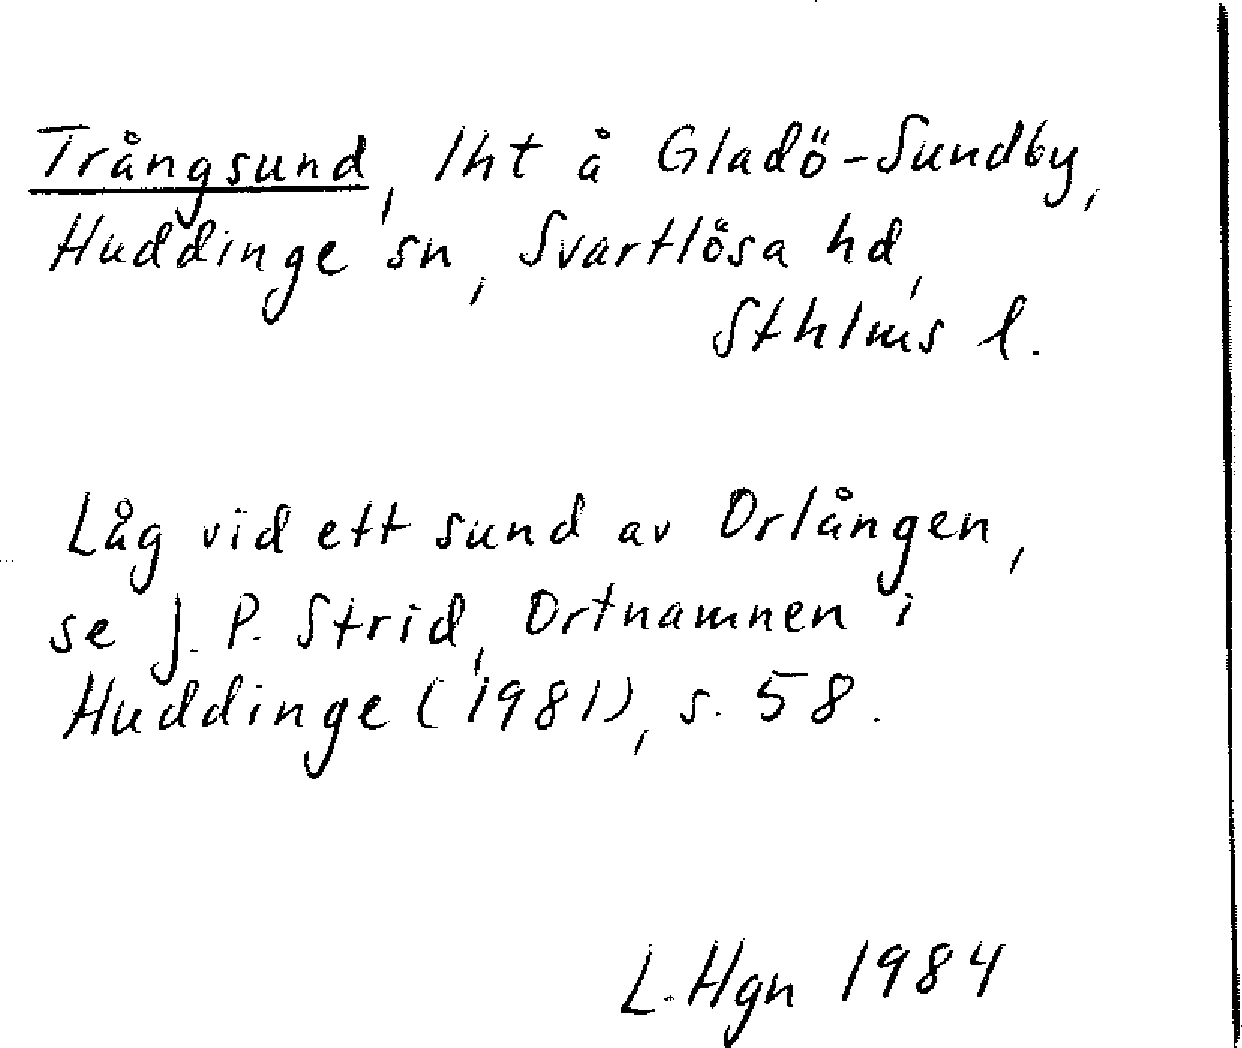 Trångsund, lht å Gladö-Sundby,
Huddinge sn, Svartlösa hd,
Sthlms l.
Låg vid ett sund av Orlången,
se J. P. Strid, Ortnamnen i
Huddinge (1981), s. 58.
L. Hgn 1984